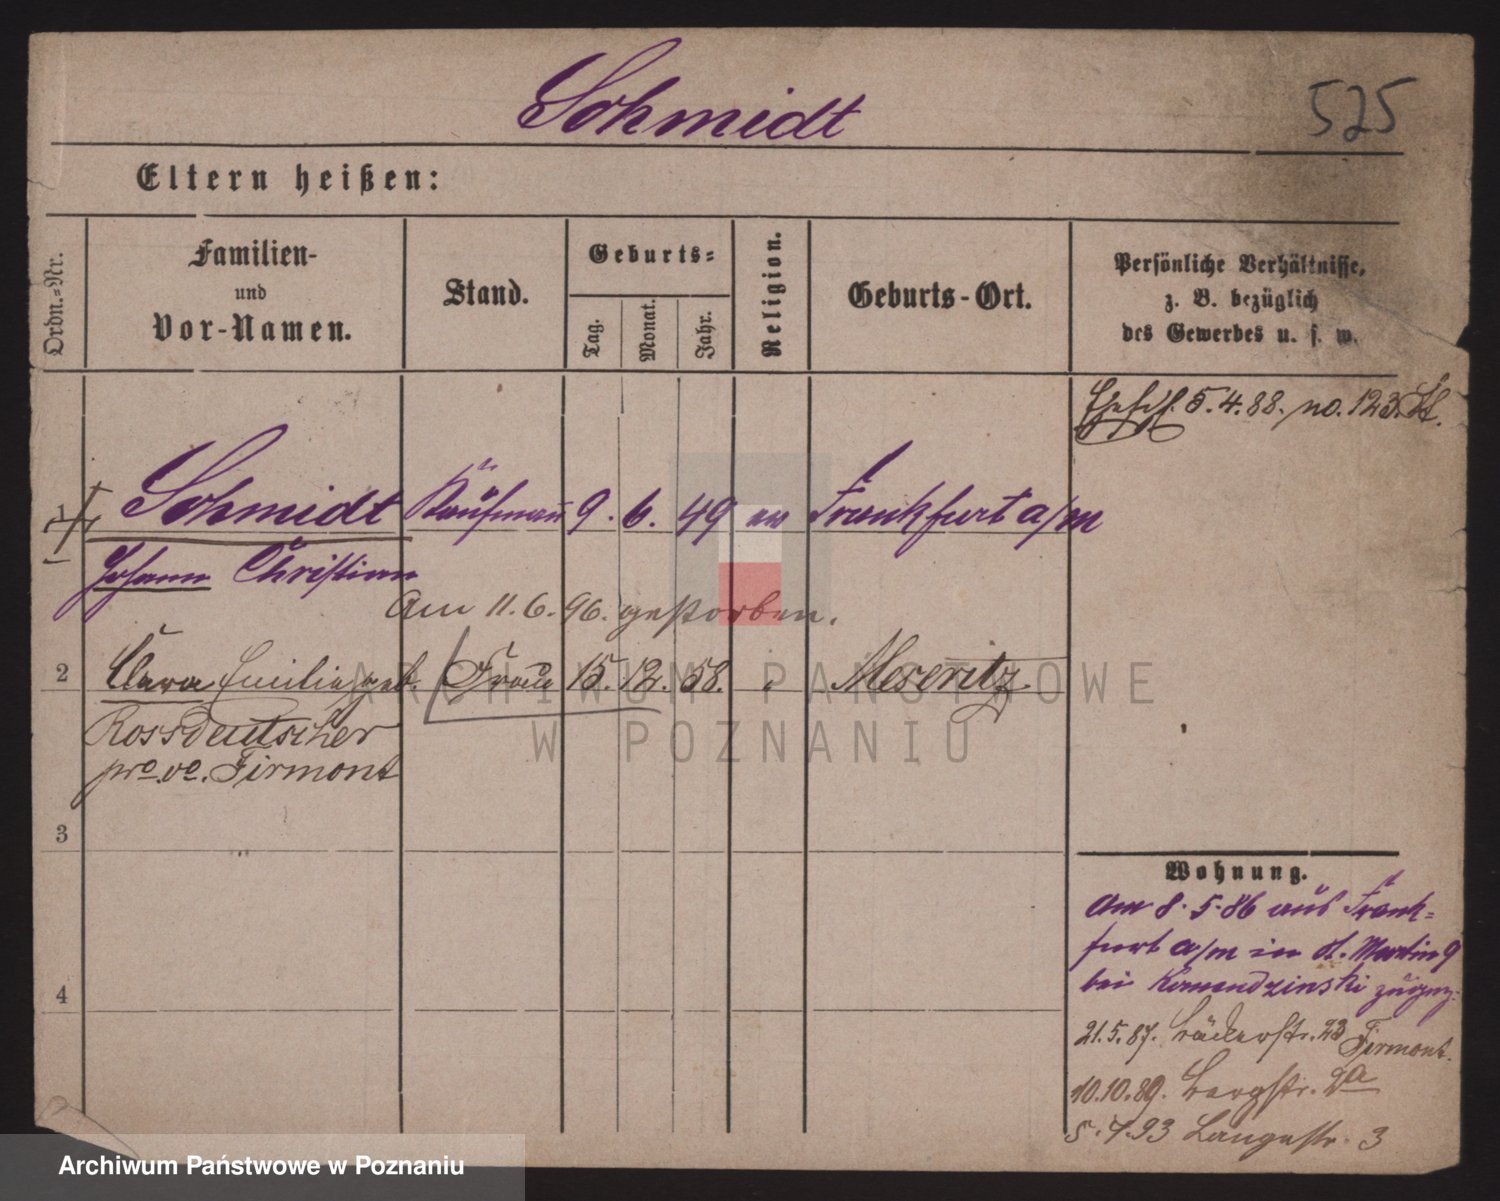 Schmidt
525
Eltern heißen:
Ordn.-Nr.
Familien-
und
Vor-Namen.
Stand.
Geburts-
Tag.
Monat.
Jahr.
Religion.
Geburts-Ort.
Persönliche Verhältnisse,
z. B. bezüglich
des Gewerbes u. s. w.
5.4.88. no. 123.
1 Schmidt Kaufmann 9. 6. 49 ev Frankfurt a/m
Johann Christian
Am 11.6.96. gestorben.
2 Clara Emilie geb. Frau 15. 12. 58. Meseritz
Rossdeutscher
Firmont
3
4
Wohnung.
Am 8.5.86 aus Frank-
furt a/m in St. Martin 9
bei zugez.
21.5.87. Bäckerstr. 23 Firmont.
10.10.89. Bergstr. 2a
5.7.93 Langestr. 3
ARCHIWUM PAŃSTWOWE
W POZNANIU
Archiwum Państwowe w Poznaniu